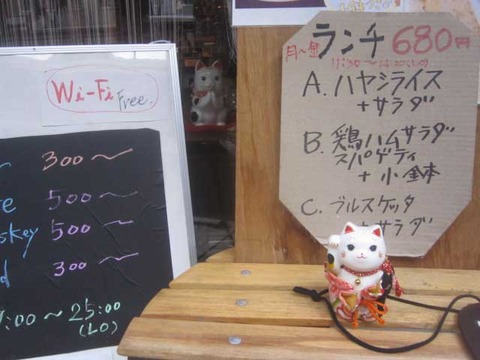 Wi-Fi
Free.
300～
500～
skey 500～
300～
:00～25:00
(LO)
ランチ 680円
月～金
A. ハヤシライス
+サラダ
B. 鶏ハムサラダ
スパゲティ
+小鉢
C. ブルスケッタ
サラダ